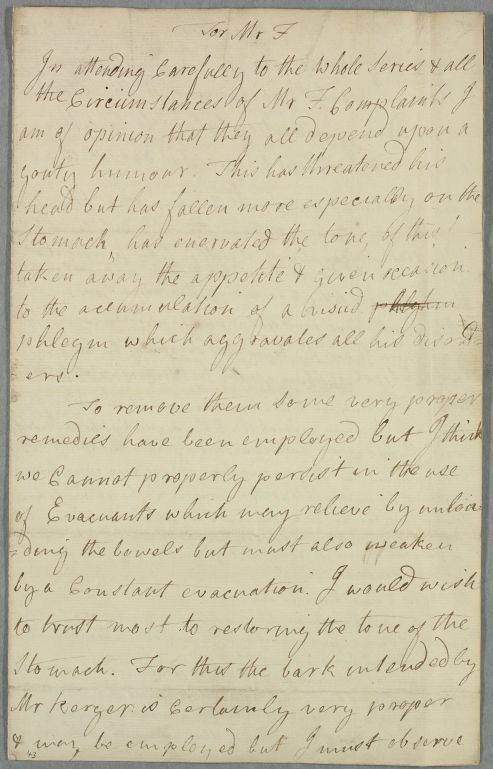 For Mr F
In attending Carefully to the whole series & all
the Circumstances of Mr F. Complaints I
am of opinion that they all depend upon a
gouty humour. This has threatened his
head but has fallen more especially on the
Stomach, has enervated the tone of this
taken away the appetite & given occasion
to the accumulation of a viscid phlegm
phlegm which aggravates all his disord=
ers.
To remove them some very proper
remedies have been employed but I think
we Cannot properly persist in the use
of Evacuants which may relieve by unloa-
=ding the bowels but must also weaken
by a Constant evacuation. I would wish
to trust most to restoring the tone of the
Stomach. For this the bark intended by
Mr Kerzer is Certainly very proper
& may be employed but I must observe
43